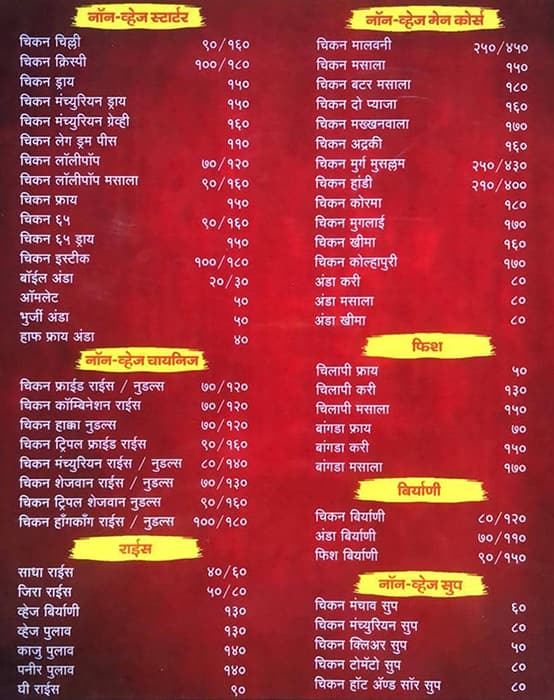 नॉन-व्हेज स्टार्टर
चिकन चिल्ली ९०/१६०
चिकन क्रिस्पी १००/१८०
चिकन ड्राय १५०
चिकन मंच्युरियन ड्राय १५०
चिकन मंच्युरियन ग्रेव्ही १६०
चिकन लेग ड्रम पीस ११०
चिकन लॉलीपॉप ७०/१२०
चिकन लॉलीपॉप मसाला ९०/१६०
चिकन फ्राय १५०
चिकन ६५ ९०/१६०
चिकन ६५ ड्राय १५०
चिकन इस्टीक १००/१८०
बॉईल अंडा २०/३०
ऑमलेट ५०
भुर्जी अंडा ५०
हाफ फ्राय अंडा ४०
नॉन-व्हेज चायनिज
चिकन फ्राईड राईस / नुडल्स ७०/१२०
चिकन कॉम्बिनेशन राईस ७०/१२०
चिकन हाक्का नुडल्स ७०/१२०
चिकन ट्रिपल फ्राईड राईस ९०/१६०
चिकन मंच्युरियन राईस / नुडल्स ८०/१४०
चिकन शेजवान राईस / नुडल्स ७०/१३०
चिकन ट्रिपल शेजवान नुडल्स ९०/१६०
चिकन हाँगकाँग राईस / नुडल्स १००/१८०
राईस
साधा राईस ४०/६०
जिरा राईस ५०/८०
व्हेज बिर्याणी १३०
व्हेज पुलाव १३०
काजु पुलाव १४०
पनीर पुलाव १४०
घी राईस ९०
नॉन-व्हेज मेन कोर्स
चिकन मालवनी २५०/४५०
चिकन मसाला १५०
चिकन बटर मसाला १८०
चिकन दो प्याजा १६०
चिकन मख्खनवाला १७०
चिकन अद्रकी १६०
चिकन मुर्ग मुसल्लम २५०/४३०
चिकन हांडी २१०/४००
चिकन कोरमा १८०
चिकन मुगलाई १७०
चिकन खीमा १६०
चिकन कोल्हापुरी १७०
अंडा करी ८०
अंडा मसाला ८०
अंडा खीमा ८०
फिश
चिलापी फ्राय ५०
चिलापी करी १३०
चिलापी मसाला १५०
बांगडा फ्राय ७०
बांगडा करी १५०
बांगडा मसाला १७०
बिर्याणी
चिकन बिर्याणी ८०/१२०
अंडा बिर्याणी ७०/११०
फिश बिर्याणी ९०/१५०
नॉन-व्हेज सुप
चिकन मंचाव सुप ६०
चिकन मंच्युरियन सुप ८०
चिकन क्लिअर सुप ५०
चिकन टोमॅटो सुप ८०
चिकन हॉट ॲण्ड सॉर सुप ८०